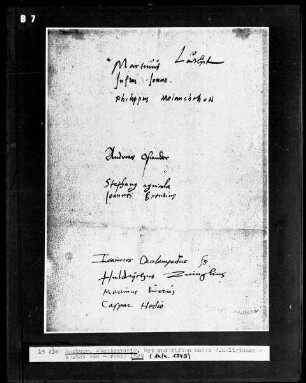 B 7
Martinus Luther
Justus Jonas.
Philippus Melanchthon
Andreas Osiander
Stephanus agricola
Joannes Brentius
Joannes Oecolampadius Ss
Huldrychus Zuinglius
Martinus Bucerus
Caspar Hedio
19 230 Marburg, Staatsarchiv,
1529 (Aufn. 1949)